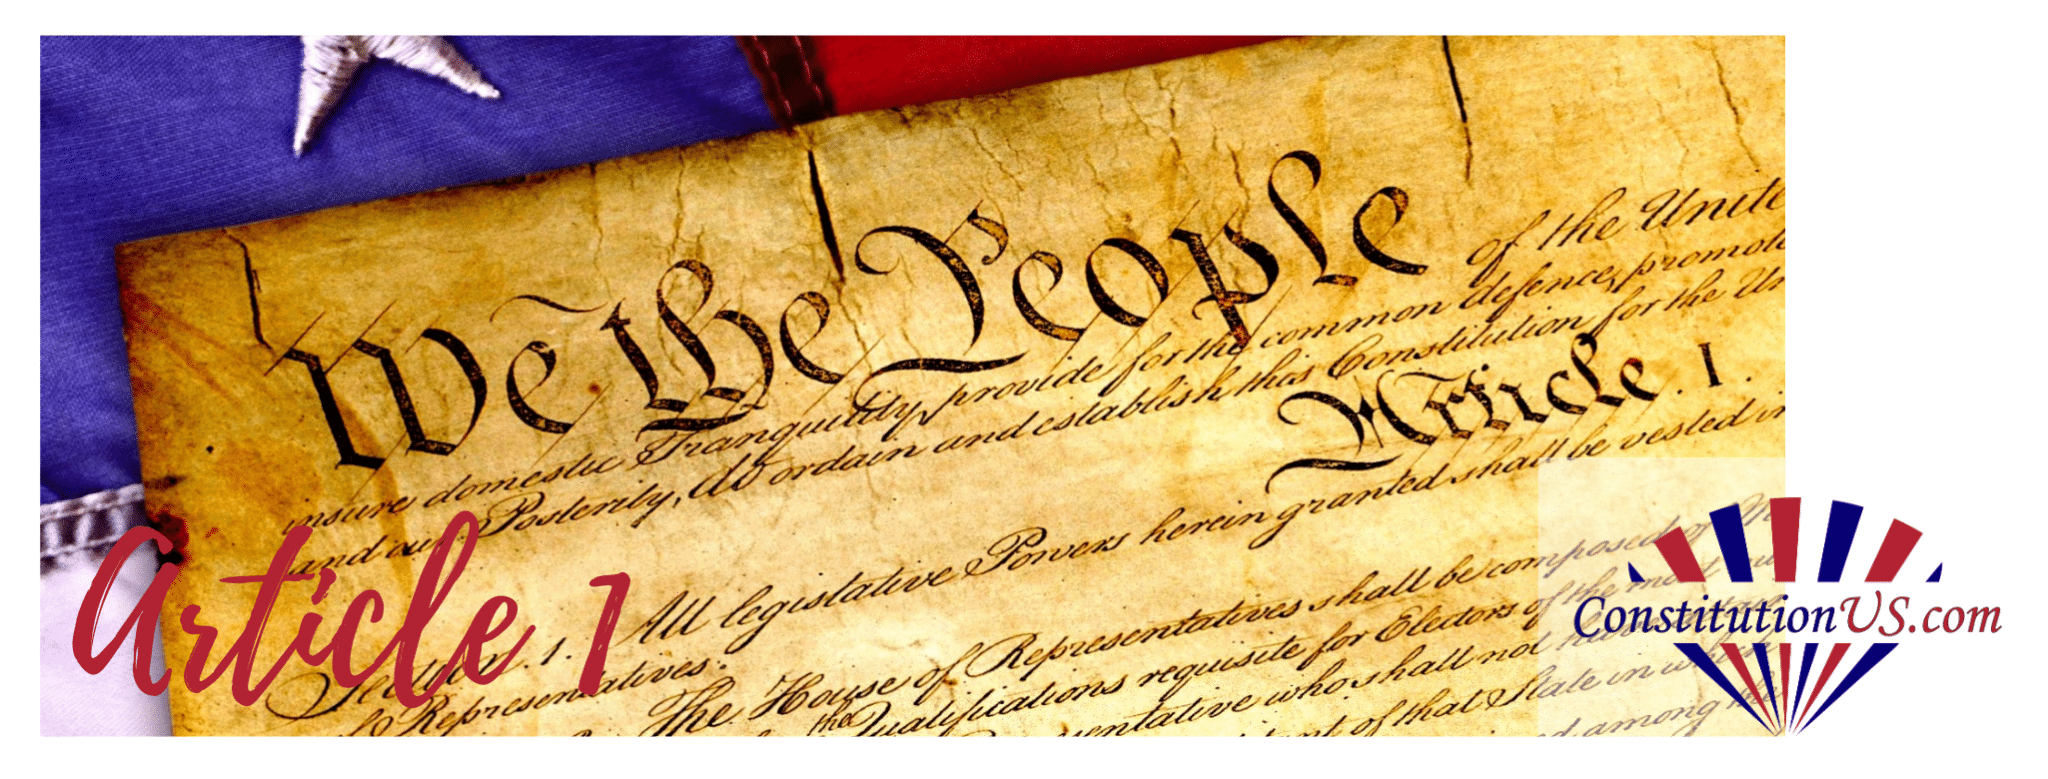 We the People of the Unite
insure domestic Tranquility, provide for the common defence, promote
and our Posterity, do ordain and establish this Constitution for the Un
Article. I.
Section. 1. All legislative Powers herein granted shall be vested in
of Representatives.
The House of Representatives shall be composed of
the Qualifications requisite for Electors of the most
who shall not
of that State in which
among the
Article 1
ConstitutionUS.com